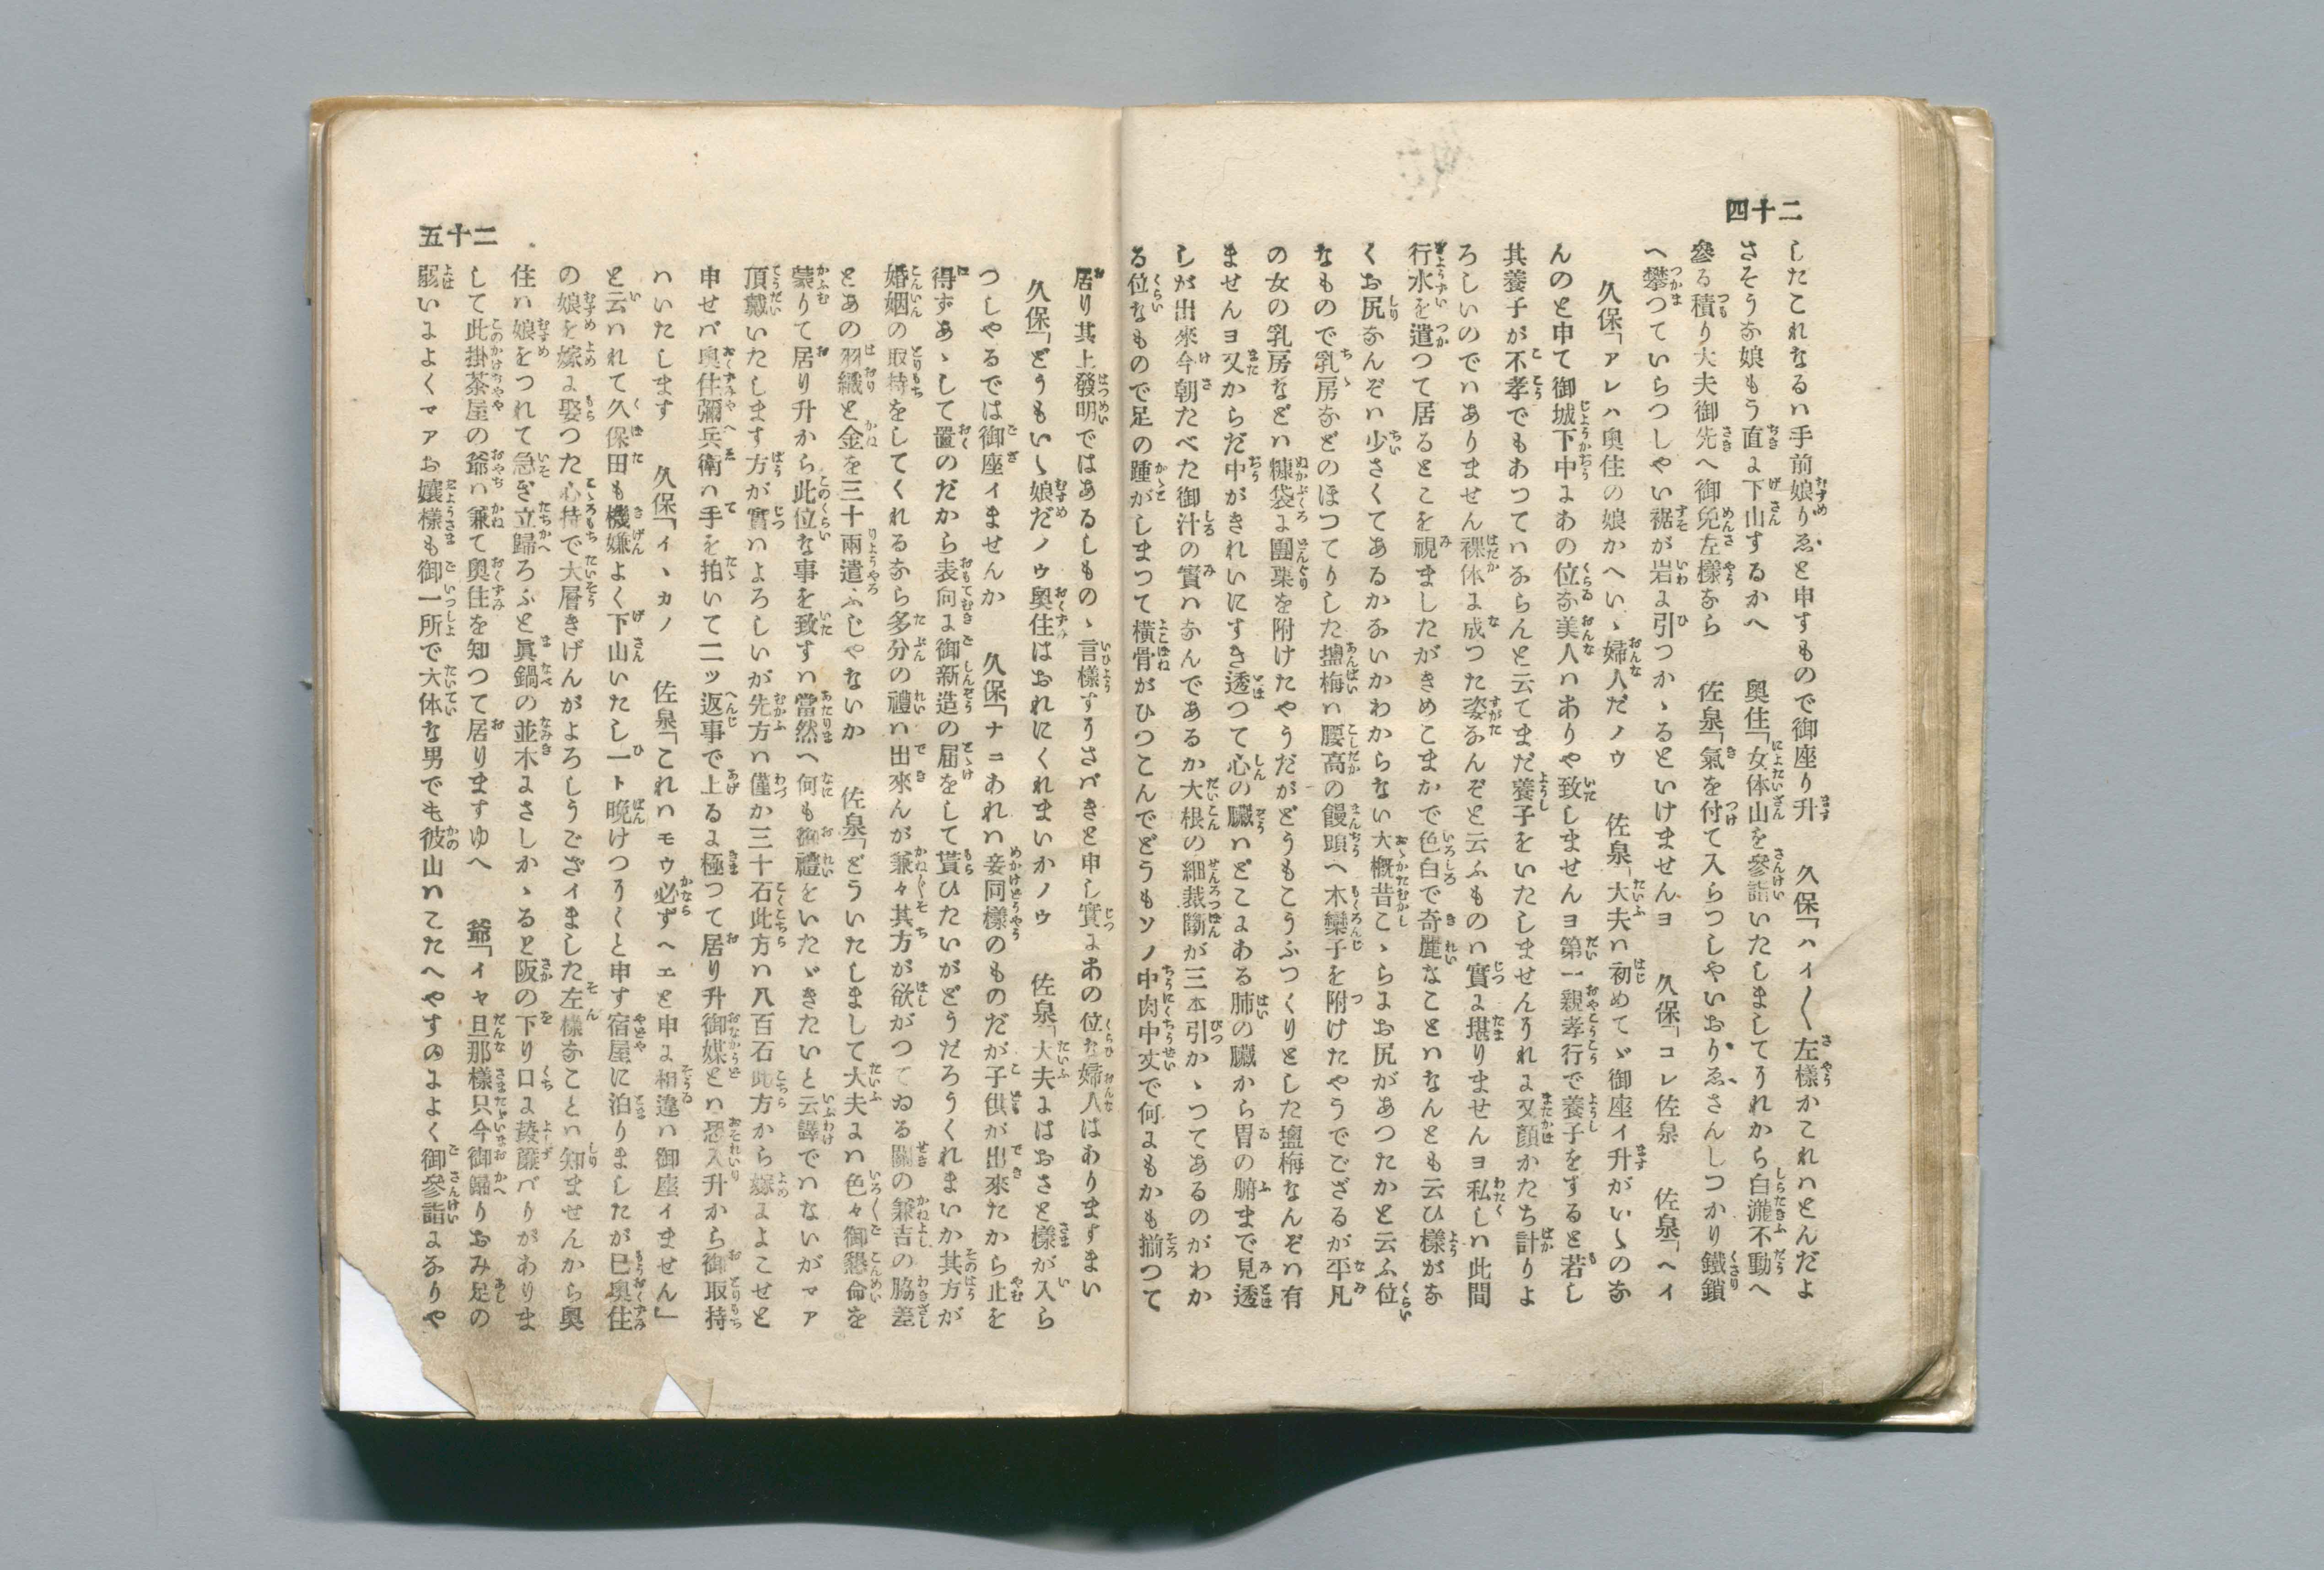 二十四
したこれなるハ手前娘りゑと申すもので御座り升　久保「ハイ〳〵左様かこれハとんだよ
さそうな娘もう直に下山するかへ　奥住「女体山を參詣いたしましてそれから白瀧不動へ
參る積り大夫御先へ御免左樣なら　佐泉「氣を付て入らつしやいおりゑさんしつかり鐵鎖
へ攀つていらつしやい裾が岩に引つかゝるといけませんヨ　久保「コレ佐泉　佐泉「ヘイ
久保「アレハ奥住の娘かへいゝ婦人だノウ　佐泉「大夫ハ初めてゞ御座イ升がいゝのな
んのと申て御城下中にあの位な美人ハありや致しませんヨ第一親孝行で養子をすると若し
其養子が不孝でもあつてハならんと云てまだ養子をいたしませんそれに又顔かたち計りよ
ろしいのでハありません裸体に成つた姿なんぞと云ふものハ實に堪りませんヨ私しハ此間
行水を遣つて居るとこを視ましたがきめこまかで色白で奇麗なことハなんとも云ひ様がな
くお尻なんぞハ少さくてあるかないかわからない大概昔こゝらにお尻があつたかと云ふ位
なもので乳房などのぼつてりした塩梅ハ腰高の饅頭へ木欒子を附けたやうでござるが平凡
の女の乳房などハ糠袋に團栗を附けたやうだがどうもこうふつくりとした塩梅なんぞハ有
ませんヨ又からだ中がきれいにすき透つて心の臓ハどこにある肺の臓から胃の腑まで見透
しが出來今朝たべた御汁の實ハなんであるか大根の細裁斷が三本引かゝつてあるのがわか
る位なもので足の踵がしまつて横骨がひつこんでどうもソノ中肉中丈で何にもかも揃つて
二十五
居り其上發明ではあるしものゝ言樣すうさバきと申し實にあの位な婦人はありますまい
久保「どうもいゝ娘だノウ奥住はおれにくれまいかノウ　佐泉「大夫にはおさと様が入ら
つしやるでは御座イませんか　久保「ナニあれハ妾同様のものだが子供が出來たから止を
得ずあゝして置のだから表向に御新造の届をして貰ひたいがどうだろうくれまいか其方が
婚姻の取持をしてくれるなら多分の禮ハ出來んが兼々其方が欲がつてゐる關の兼吉の脇差
とあの羽織と金を三十兩遣ふじやないか　佐泉「どういたしまして大夫にハ色々御懇命を
蒙りて居り升から此位な事を致すハ當然へ何も御禮をいたゞきたいと云譯でハないがマア
頂戴いたします方が實ハよろしいが先方ハ僅か三十石此方ハ八百石此方から嫁によこせと
申せバ奥住彌兵衛ハ手を拍いて二ッ返事で上るに極つて居り升御媒とハ恐入升から御取持
ハいたします　久保「イヽカノ　佐泉「これハモウ必ずヘエと申に相違ハ御座イません」
と云ハれて久保田も機嫌よく下山いたし一ト晩けつそくと申す宿屋に泊りましたが巳奥住
の娘を嫁に娶つた心持で大層きげんがよろしうございました左様なことハ知ませんから奥
住ハ娘をつれて急ぎ立歸ろふと眞鍋の並木にさしかゝると阪の下り口に葭簾バりがありま
して此掛茶屋の爺ハ兼て奥住を知つて居りますゆへ　爺「イヤ旦那様只今御歸りおみ足の
弱いによくマアお孃様も御一所で大体な男でも彼山ハこたへやすのによく御參詣になりや